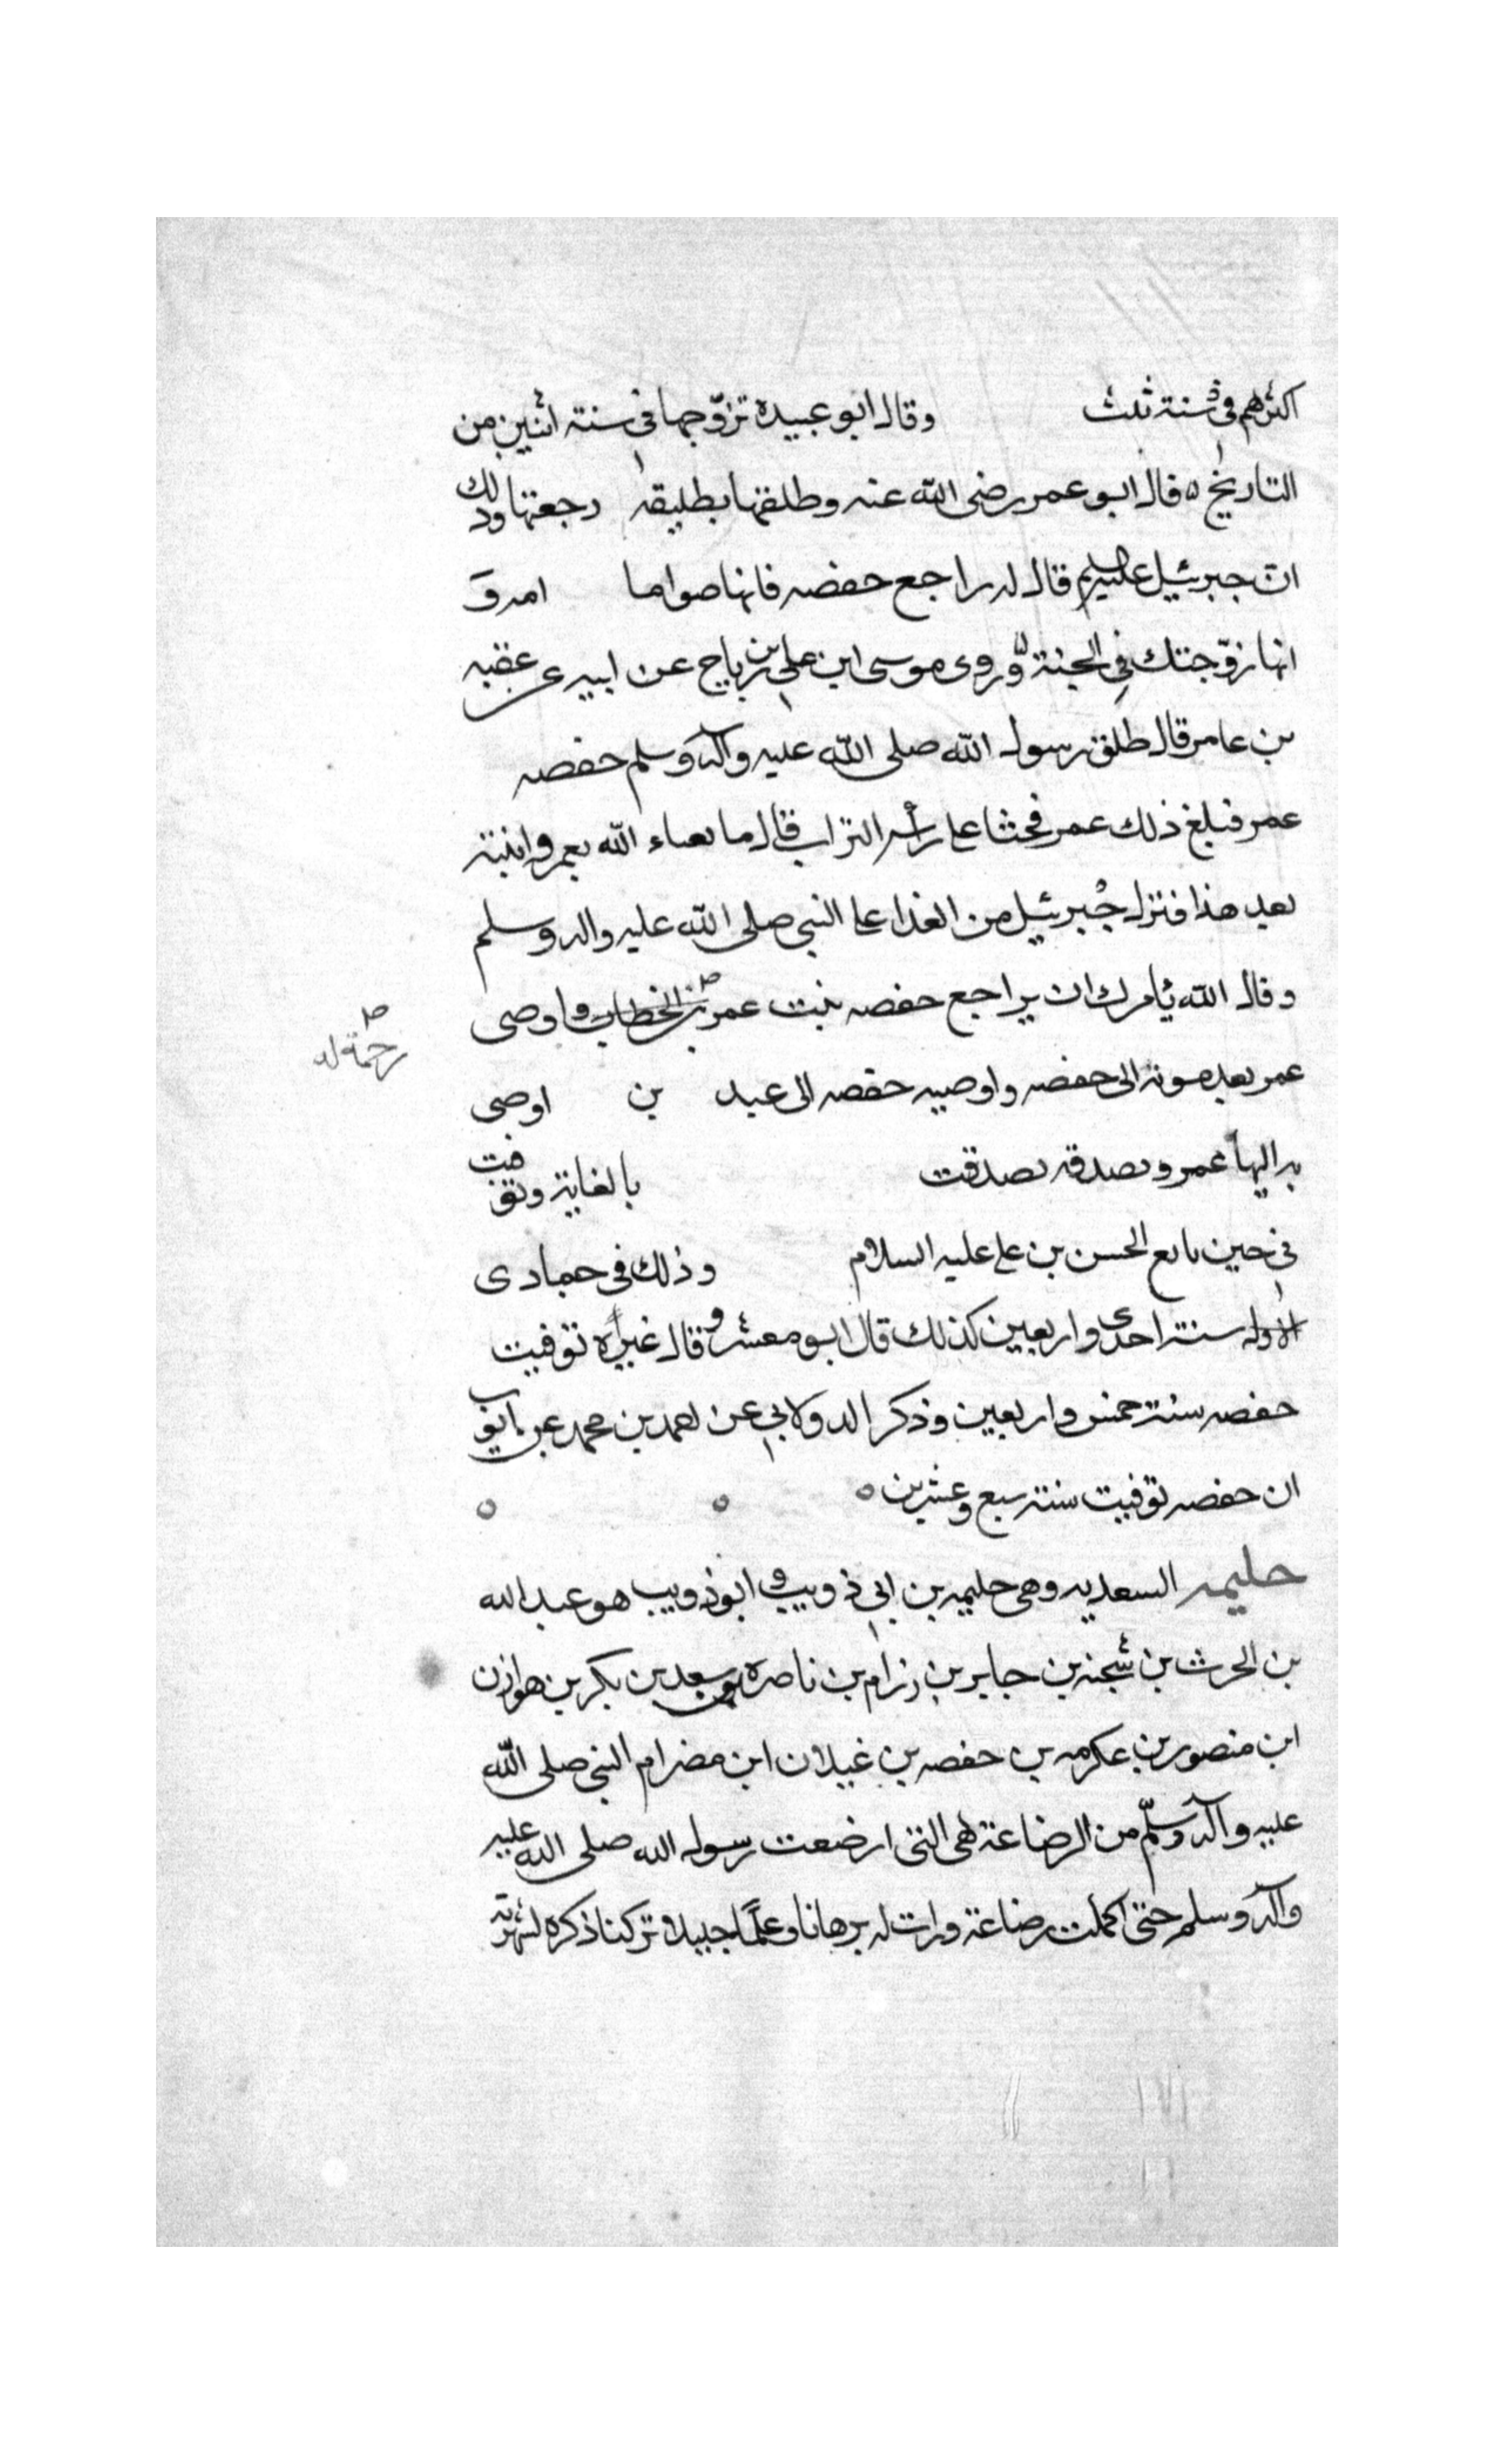 اكثرهم في سنة ثلث وقال ابو عبيدة تزوّجها في سنة اثنين من
التاريخ ه قال ابو عمر رضى الله عنه وطلقها بطليقه رجعتها وذلك
ان جبرئيل عليه السلم قال له راجع حفصه فانها صواما
انها زوّجتك في الجنة وروى موسى ابن علي بن رباح عن ابيه عن عقبه
بن عامر قال طلق رسول الله صلى الله عليه وآله وسلم حفصه
عمر فبلغ ذلك عمر فحثا على رأسه التراب قال ما بعباء الله بعمر وابنته
بعد هذا فنزل جبرئيل من الغدا على النبي صلى الله عليه واله وسلم
وقال الله يأمرك ان يراجع حفصه بنت عمر بن الخطاب واوصى
رحمة له
عمر بعد موته الى حفصه واوصيه حفصه الى عبد بن اوصى
به اليها عمر وبصدقه بصدقت بالغابة وتوفت
في حين بايع الحسن بن على عليه السلام وذلك في جمادى
الاوله سنة احدى واربعين كذلك قال ابو معشر وقال غيره توفيت
حفصه سنة خمس واربعين وذكر الدولابي عن احمد بن محمد عن ايوب
ان حفصه توفيت سنة سبع وعشرين ه ه ه
حليمه السعديه وهى حليمه بن ابي ذويب وابو ذويب هو عبد الله
بن الحرث بن شجنه بن جابر بن رزام بن ناصره بن سعد بن بكر بن هوازن
ابن منصور بن عكرمه بن حفصه بن غيلان ابن مضر ام النبي صلى الله
عليه وآله وسلّم من الرضاعة هى التى ارضعت رسول الله صلى الله عليه
وآله وسلم حتى اكملت رضاعة ورات له برهانا وعلمًا جبيلا تركنا ذكره لشهرته